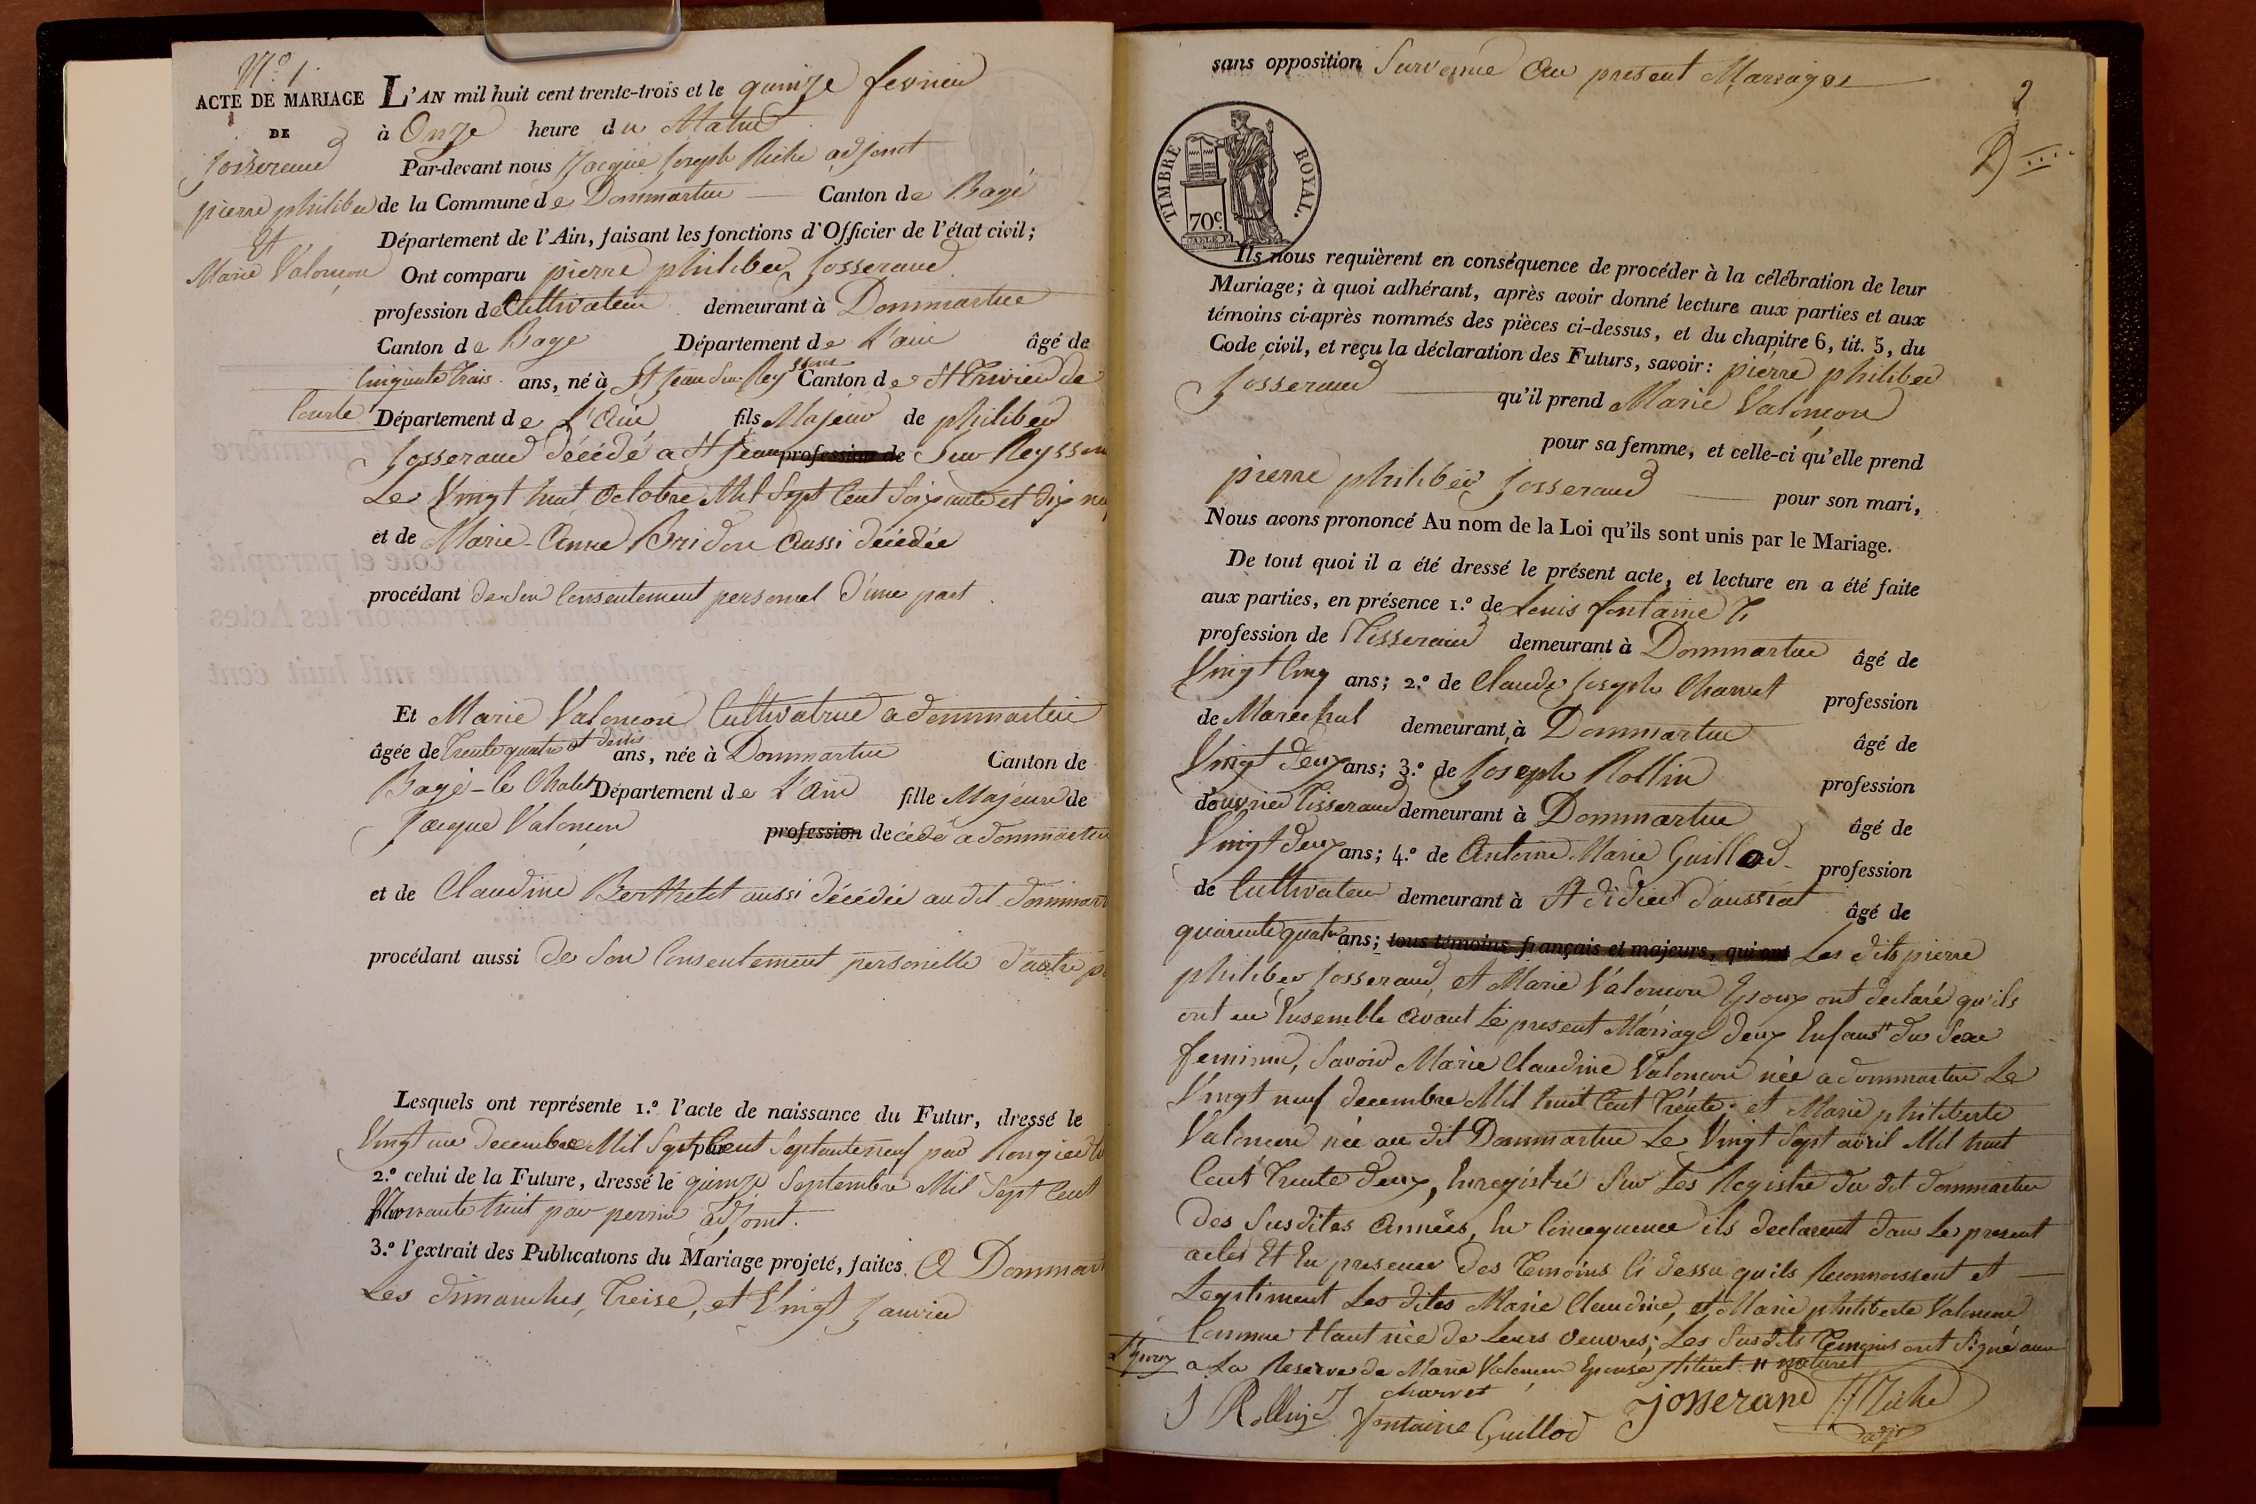 N.o 1.
ACTE DE MARIAGE
DE
Josserand
pierre philiber
Et
Marie Valonçon
L'AN mil huit cent trente-trois et le quinze fevrier
à Onze heure du Matin
Par-devant nous Jacque Joseph Riche adjoint
de la Commune de Dommartin Canton de Bagé
Département de l'Ain, faisant les fonctions d'Officier de l'état civil;
Ont comparu pierre philiber Josserand
profession de Cultivateur demeurant à Dommartin
Canton de Bage Département de L'ain âgé de
Cinquante trais ans, né à St Jean Sur Reyssouze Canton de St Trivier de
Courte Département de L'Ain fils Majeur de philiber
Josserand décédé a St Jean profession de Sur Reyssou
Le Vingt huit Octobre Mil Sept Cent Soixante et dix neu
et de Marie-Anne Bridon aussi décédée
procédant de Son Consentement personnel d'une part.
Et Marie Valoncon Cultivatrice a dommartin
âgée de Trente quatre et demis ans, née à Dommartin Canton de
Bagé-le Chatel Département de L'Ain fille Majeure de
Jacque Valoncon profession decédé a dommartin
et de Claudine Berthelet aussi décédée au dit dommart
procédant aussi de Son Consentement personelle d'autre p
Lesquels ont représente 1.º l'acte de naissance du Futur, dressé le
Vingt un decembre Mil Sept par Cent Septante neuf par Rongier
2.º celui de la Future, dressé le quinze Septembre Mil Sept Cent
Nonante huit par perrin adjoint.
3.º l'extrait des Publications du Mariage projeté, faites. A Dommart
Les dimanches, Treise, et Vingt Janvier
sans opposition Survenue Au present Mariage
2
TIMBRE ROYAL.
70c.
Ils nous requièrent en conséquence de procéder à la célébration de leur
Mariage; à quoi adhérant, après avoir donné lecture aux parties et aux
témoins ci-après nommés des pièces ci-dessus, et du chapitre 6, tit. 5, du
Code civil, et reçu la déclaration des Futurs, savoir: pierre philiber
Josserand qu'il prend Marie Valonçon
pour sa femme, et celle-ci qu'elle prend
pierre philiber Josserand pour son mari,
Nous avons prononcé Au nom de la Loi qu'ils sont unis par le Mariage.
De tout quoi il a été dressé le présent acte, et lecture en a été faite
aux parties, en présence 1.º de Louis fontaine
profession de Tisserand demeurant à Dommartin âgé de
Vingt Cinq ans; 2.º de Claude Joseph Charvet profession
de Marechal demeurant à Dommartin âgé de
Vingt deux ans; 3.º de Joseph Rollin profession
d'ouvrier Tisserand demeurant à Dommartin âgé de
Vingt deux ans; 4.º de Antoine Marie Guillod profession
de Cultivateur demeurant à St didier d'aussiat âgé de
quarente quatre ans; tous témoins français et majeurs, qui ont Les dits pierre
philiber Josserand, et Marie Valoncon Epoux ont declaré qu'ils
ont eu Ensemble Avant Le present Mariage deux Enfans du Sexe
feminin, Savoir Marie Claudine Valoncon née a dommartin Le
Vingt neuf decembre Mil huit Cent Trente. et Marie philiberte
Valoncon née au dit Dommartin Le Vingt Sept avril Mil huit
Cent Trente deux, Enregistré Sur Les Registre du dit dommartin
des Susdites Années, En Consequence ils declarent dans Le present
acte Et En presence des Temoins Ci dessu qu'ils Reconnoissent et
Legitiment Les dites Marie Claudine, et Marie philiberte Valoncon
Comme Etant née de Leurs Oeuvres; Les Susdits Temoins ont Signé avec
a La Reserve de Marie Valoncon Epouse
J Rollin charvet
fontaine Guillod
josserand JJ Riche
adjt